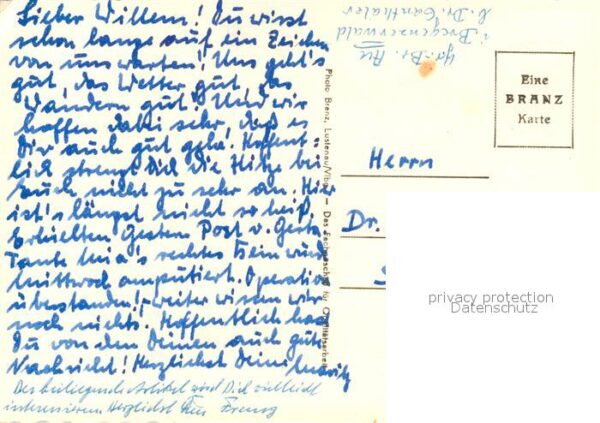 Lieber Willem! Du wirst
schon lange auf ein Zeichen
von uns warten! Uns geht's
gut, das Wetter gut, das
Wandern gut! Und wir
hoffen dabei sehr, daß es
Dir auch gut geht. Hoffent-
lich strengt Dich die Hitze bei
Euch nicht zu sehr an. Hier
ist's längst nicht so heiß.
Erhielten Gestern Post v. Gerta
Tante rechtes Bein wurde
Mittwoch amputiert. Operation
überstanden! Weiter wissen wir
noch nichts. Hoffentlich hast
Du von den Deinen auch gute
Nachricht! Herzlichst Deine
Der beiliegende Artikel wird Dich vielleicht
interessieren Herzlichst
b. Dr. Ganthaler
i. Bregenzerwald
Au
Photo Branz, Lustenau/Vlbg. — Das Fachgeschäft für Qualitätsarbeit
Eine
BRANZ
Karte
Herrn
Dr.
privacy protection
Datenschutz